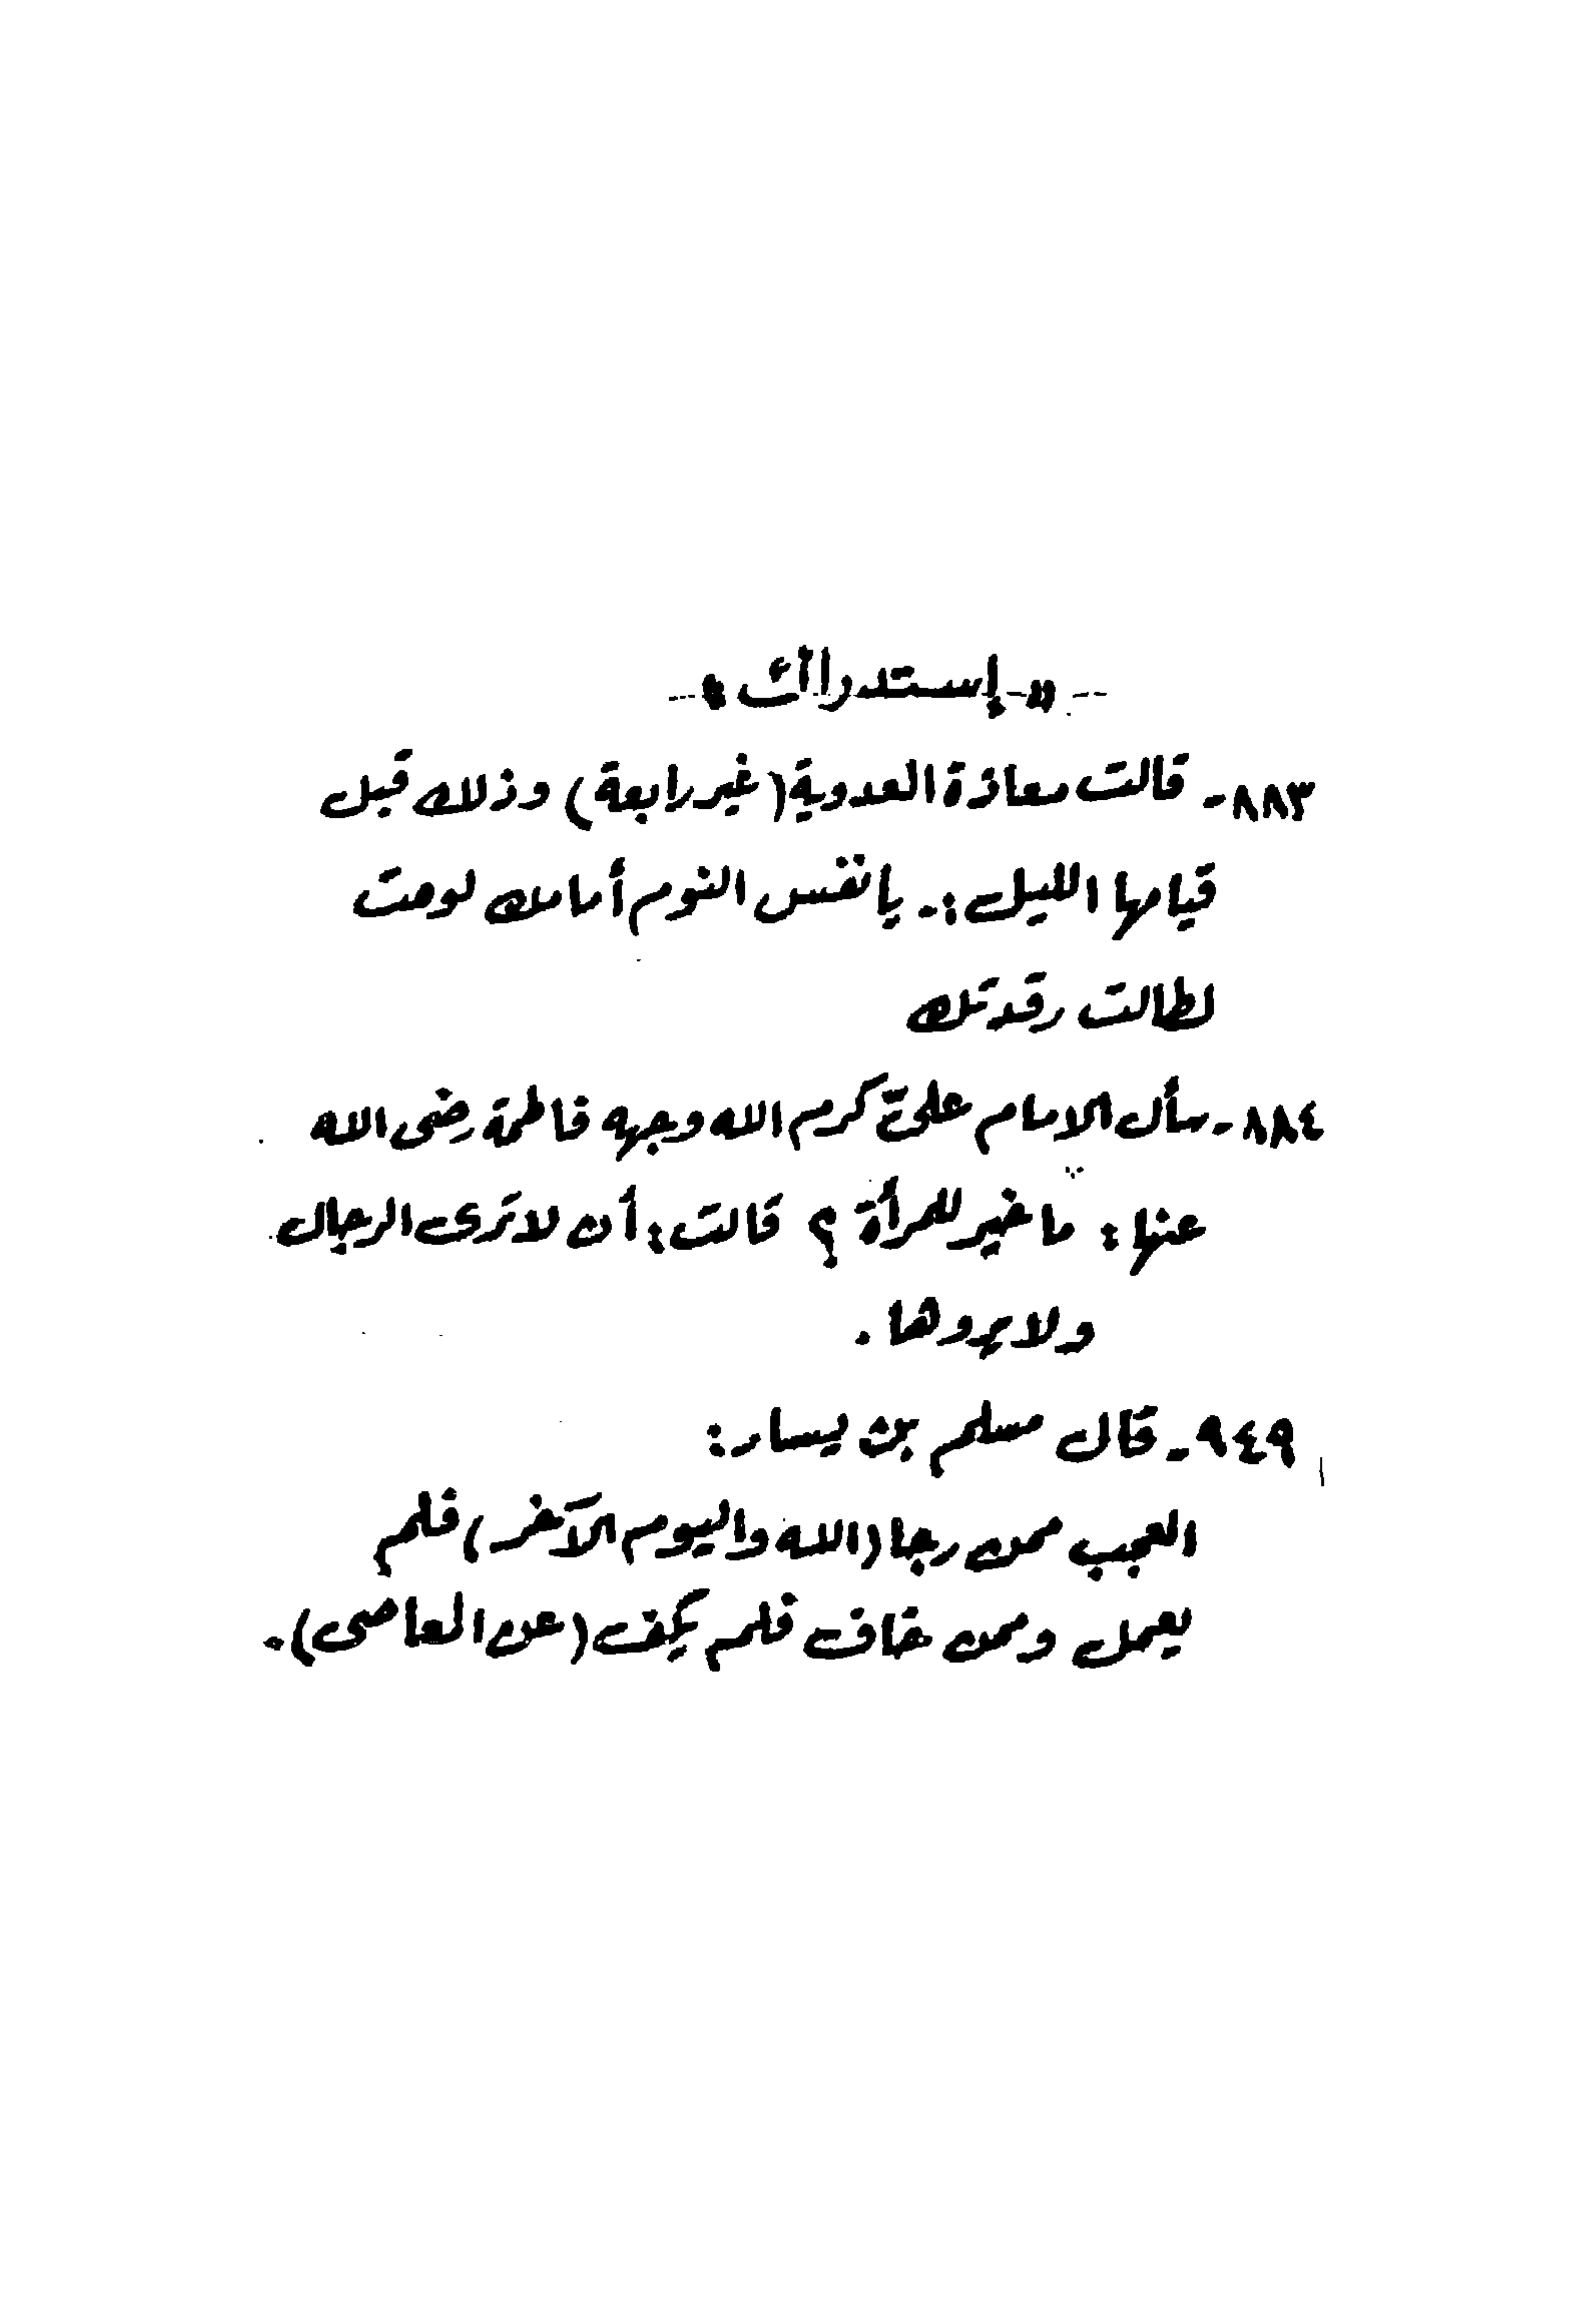 « إستدراك »
٨٨٣- قالت معاذة العدوية (غير رابعة) وذلك قبل
قيامها الليل :- يا نفس النوم أمامك لومت
لطالت رقدتك
٨٨٤- سأل الامام علىّ كرم الله وجهه فاطمة رضى الله
عنها : ما خير للمرأة ؟ قالت : أن لا ترى الرجال
ولا يروها .
٩٤٩- قال مسلم بن يسار :
العجب ممن رجا (الله واليوم الآخر) فلم
يعمل وممن خاف فلم يكف (عن المعاصى) .